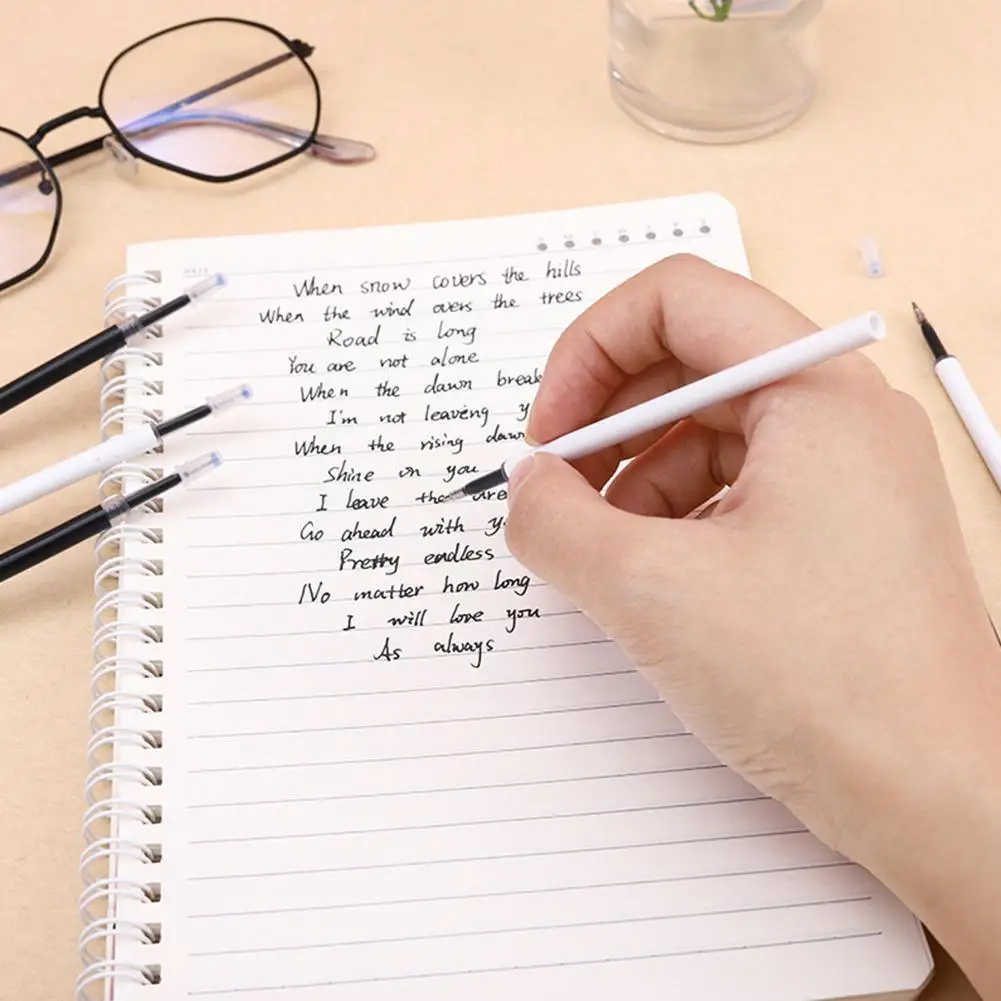 DATE S M T W T F S
When snow covers the hills
When the wind overs the trees
Road is long
You are not alone
When the dawn break
I'm not leaving
When the rising dawn
Shine on you
I leave the
Go ahead with
Pretty endless
No matter how long
I will love you
As always